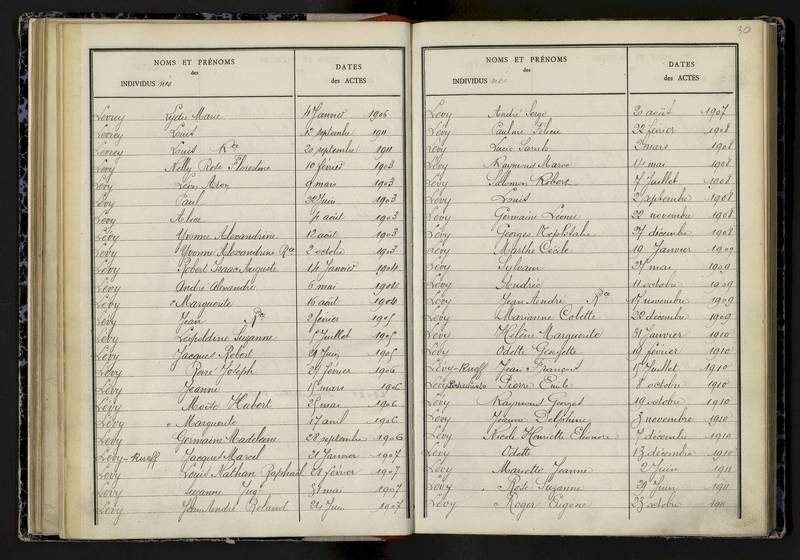 NOMS ET PRÉNOMS
des
INDIVIDUS nés
DATES
des ACTES
Levrey Lydie Marie 4 Janvier 1906
Levrey Louis 12 septembre 1911
Levrey Louis Rce 20 septembre 1911
Lévy Nelly Rose Florentine 10 février 1903
Lévy Léon Aron 9 mars 1903
Lévy Paul Juin 1903
Lévy Alice 4 août 1903
Lévy Yvonne Alexandrine 12 août 1903
Lévy Yvonne Alexandrine Rce 2 octobre 1903
Lévy Robert Isaac Auguste 14 Janvier 1904
Lévy André Alexandre 6 mai 1904
Lévy Marguerite 16 août 1904
Lévy Jean Rce 2 février 1905
Lévy Léopoldine Suzanne Juillet 1905
Lévy Jacques Robert Juin 1905
Lévy René Joseph février 1906
Lévy Jeanne 15 mars 1906
Lévy Moïse Hubert 25 mai 1906
Lévy Marguerite 17 avril 1906
Lévy Germaine Madeleine 28 septembre 1906
Lévy-Rueff Jacques Marcel 21 Janvier 1907
Lévy Louis Nathan Raphael 28 février 1907
Lévy Suzanne mai 1907
Lévy Jean André Roland Juin 1907
30
NOMS ET PRÉNOMS
des
INDIVIDUS nés
DATES
des ACTES
Lévy André Serge 20 août 1907
Lévy Pauline 22 février 1908
Lévy Lucie Sarah mars 1908
Lévy Raymond Marcel mai 1908
Lévy Salomon Robert 7 Juillet 1908
Lévy Louis 2 septembre 1908
Lévy Germaine Léonie 22 novembre 1908
Lévy Georges Nephtalie 27 décembre 1908
Lévy Marthe Cécile 19 Janvier 1909
Lévy Sylvain 27 mai 1909
Lévy Andrée 11 octobre 1909
Lévy Jean André Rce 17 novembre 1909
Lévy Marianne Colette 22 décembre 1909
Lévy Hélène Marguerite 31 Janvier 1910
Lévy Odette Georgette 19 février 1910
Lévy-Rueff Jean François 15 Juillet 1910
Lévy Pierre Emile 8 octobre 1910
Lévy Raymond Georges 19 octobre 1910
Lévy Jeanne Delphine 3 novembre 1910
Lévy Nicole Henriette Eléonore 7 décembre 1910
Lévy Odette 13 décembre 1910
Lévy Mariette Jeanne 2 Juin 1911
Lévy Rose Suzanne 29 Juin 1911
Lévy Roger Eugène 23 octobre 1911